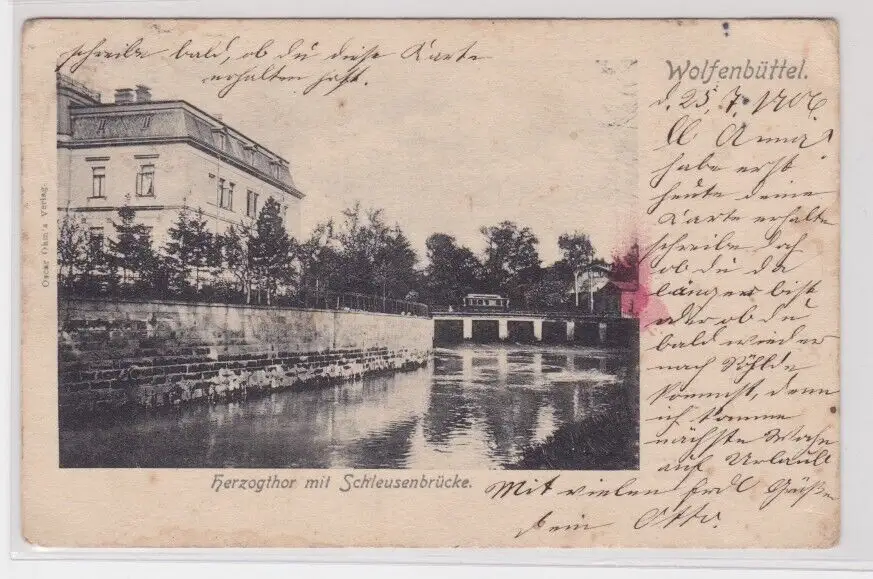 schreibe bald, ob du diese Karte
erhalten hast.
Wolfenbüttel.
d. 25. 7. 1906
Ll Anna!
habe erst
heute deine
Karte erhalte
schreibe doch
ob du da
länger bist
oder ob du
bald wieder
nach Söhlde
kommst, denn
ich komme
nächste Woche
auf Urlaub
Mit vielen Grüße
dein Otto
Herzogthor mit Schleusenbrücke.
Oscar Ohm's Verlag.